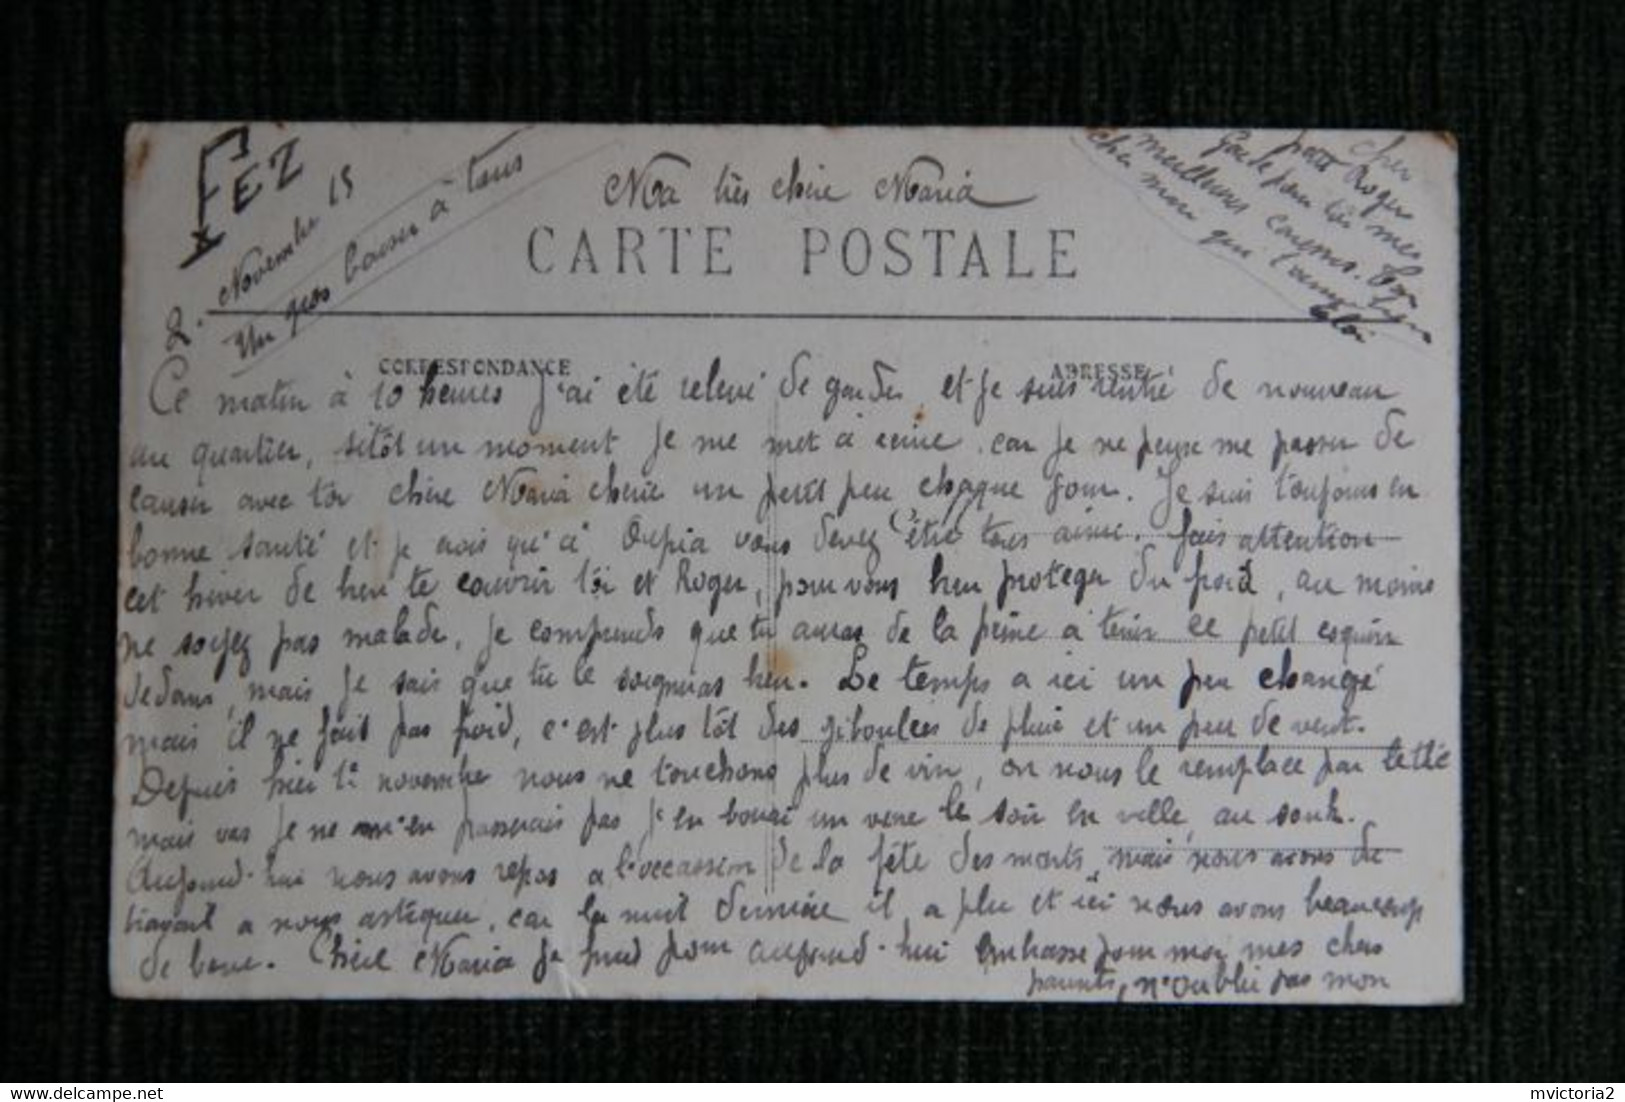 FEZ
2. Novembre 15
Un gros baiser à tous
Ma très chère Maria
CARTE POSTALE
cher
petit Roger
Garde pour toi mes
meilleures caresses. Ton
cher mon qui t'aime
CORRESPONDANCE
ADRESSE
Ce matin à 10 heures J'ai été relevé de garde, et je suis rentré de nouveau
au quartier, sitôt un moment je me met à écrire, car je ne peux me passer de
causer avec toi chère Maria chérie un petit peu chaque jour. Je suis toujours en
bonne santé et je crois qu'à Oupia vous devez être tous aime. Fais attention
cet hiver de bien te couvrir toi et Roger, pour vous bien proteger du froid, au moins
ne soyez pas malade, je comprends que tu auras de la peine à tenir ce petit coquin
dedans, mais je sais que tu le soigneras bien. Le temps a ici un peu changé
mais il ne fait pas froid, c'est plus tôt des giboulées de pluie et un peu de vent.
Depuis hier 1er novembre nous ne touchons plus de vin, on nous le remplace par le thé
mais vas je ne m'en passerais pas j'en bourai un verre le soir en ville, au souk.
Aujourd-hui nous avons repos a l'occassion de la fête des morts, mais nous avons du
travail a nous astiquer, car la nuit dernière il a plu et ici nous avons beaucoup
de boue. Chère Maria je finis pour aujourd-hui embrasse pour moi mes chers
parents, n'oublie pas mon
mvictoria2